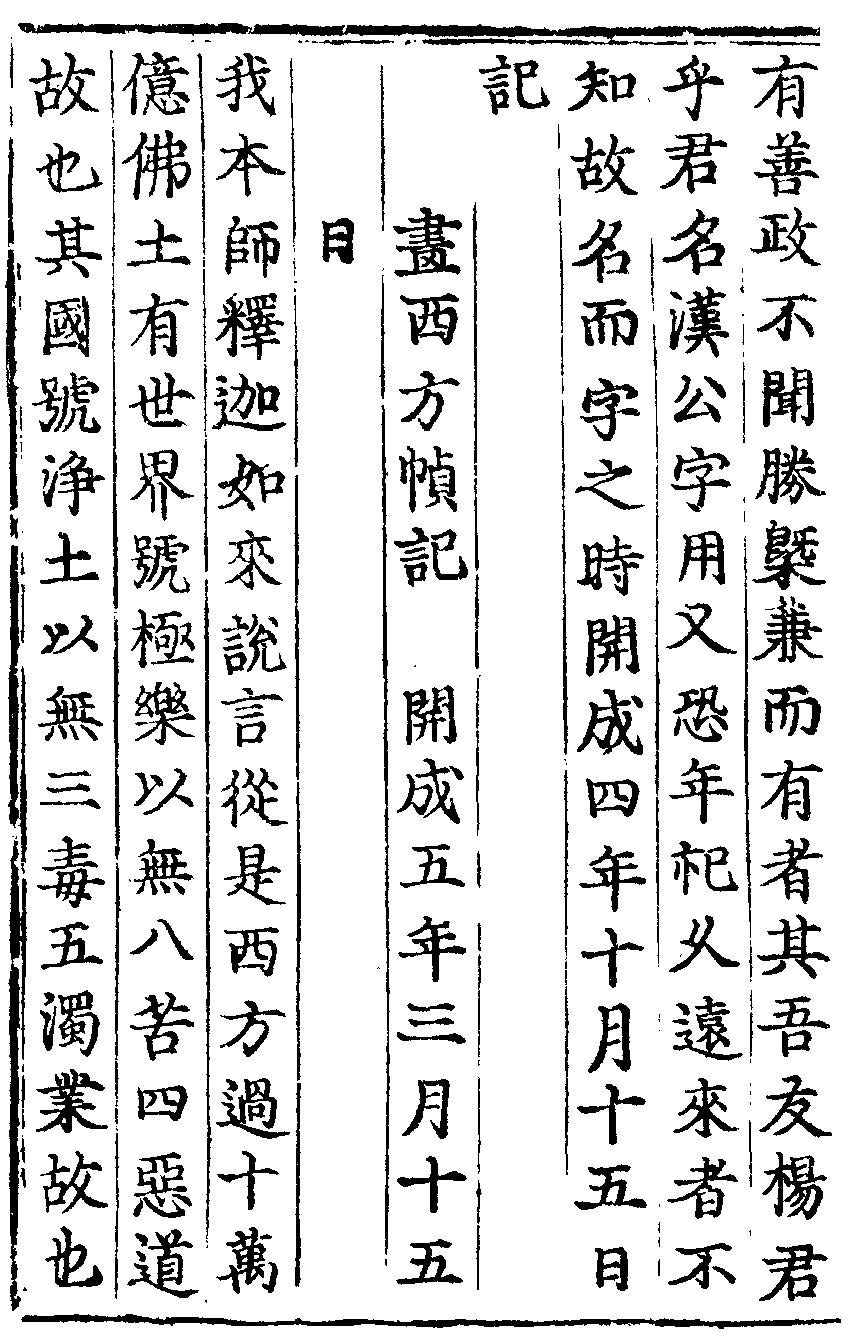 有善政不聞勝槩兼而有者其吾友楊君
乎君名漢公字用乂恐年祀久遠來者不
知故名而字之時開成四年十月十五日
記
畫西方幀記　開成五年三月十五
日
我本師釋迦如來說言從是西方過十萬
億佛土有世界號極樂以無八苦四惡道
故也其國號浄土以無三毒五濁業故也